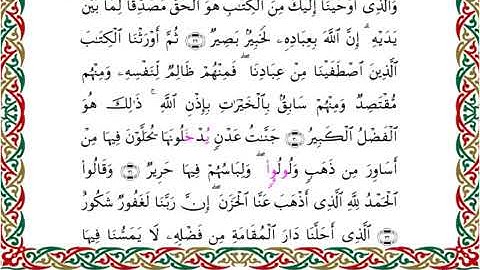 وَالَّذِي أَوْحَيْنَا إِلَيْكَ مِنَ الْكِتَٰبِ هُوَ الْحَقُّ مُصَدِّقًا لِّمَا بَيْنَ
يَدَيْهِ ۗ إِنَّ اللَّهَ بِعِبَادِهِۦ لَخَبِيرٌۢ بَصِيرٌ ثُمَّ أَوْرَثْنَا الْكِتَٰبَ
الَّذِينَ اصْطَفَيْنَا مِنْ عِبَادِنَا ۖ فَمِنْهُمْ ظَالِمٌ لِّنَفْسِهِۦ وَمِنْهُم
مُّقْتَصِدٌ وَمِنْهُمْ سَابِقٌۢ بِالْخَيْرَٰتِ بِإِذْنِ اللَّهِ ۚ ذَٰلِكَ هُوَ
الْفَضْلُ الْكَبِيرُ جَنَّٰتُ عَدْنٍ يُدْخَلُونَهَا يُحَلَّوْنَ فِيهَا مِنْ
أَسَاوِرَ مِن ذَهَبٍ وَلُولُوٕاْ ۖ وَلِبَاسُهُمْ فِيهَا حَرِيرٌ وَقَالُوا
الْحَمْدُ لِلَّهِ الَّذِي أَذْهَبَ عَنَّا الْحَزَنَ ۖ إِنَّ رَبَّنَا لَغَفُورٌ شَكُورٌ
الَّذِي أَحَلَّنَا دَارَ الْمُقَامَةِ مِن فَضْلِهِۦ لَا يَمَسُّنَا فِيهَا